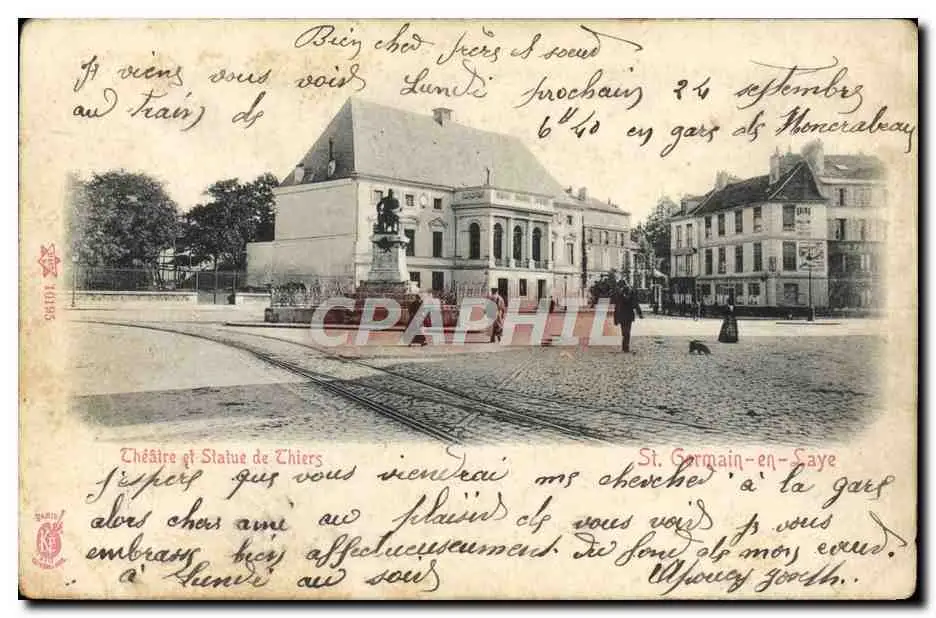 Bien cher frère et soeur
Je viens vous voir Lundi prochain 24 septembre
au train de 6h 40 en gare de Moncrabeau
10195
CPAPHIL
Théâtre et Statue de Thiers
St. Germain-en-Laye
PARIS
j'espère que vous viendrai me chercher à la gare
alors chers ami au plaisir de vous voir Je vous
embrasse bien affectueusement du fond de mon coeur
à Lundi au soir
Joseth